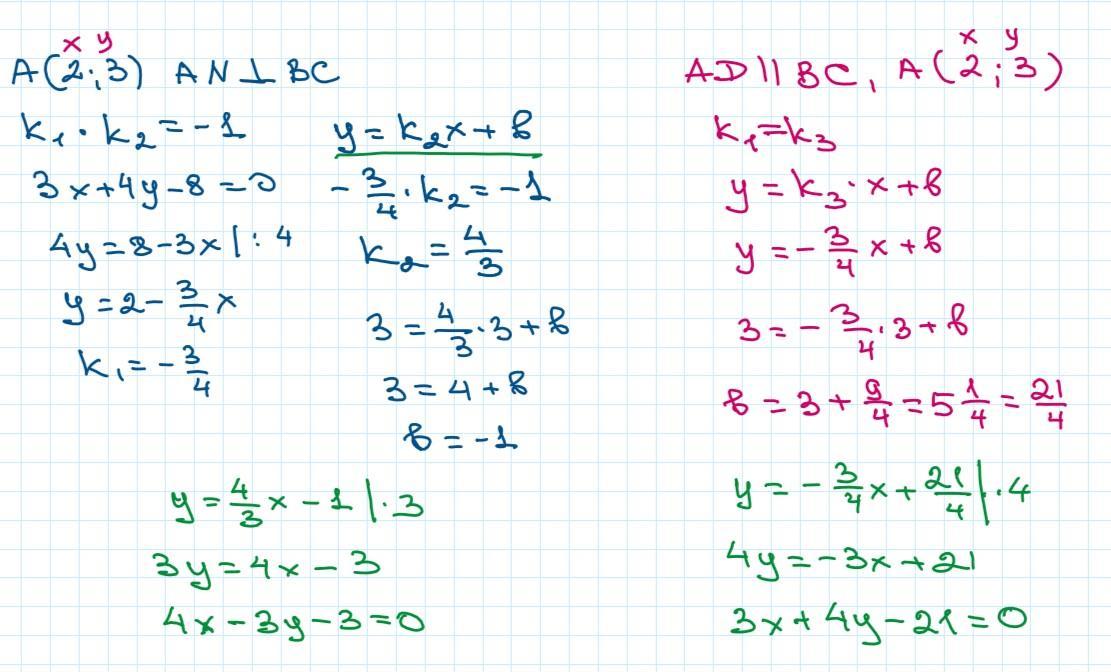 x y
A(2;3) AN⊥BC
k₁·k₂=-1
3x+4y-8=0
4y=8-3x|:4
y=2-3/4x
k₁=-3/4
y=k₂x+b
-3/4·k₂=-1
k₂=4/3
3=4/3·3+b
3=4+b
b=-1
y=4/3x-1|·3
3y=4x-3
4x-3y-3=0
x y
AD||BC, A(2;3)
k₁=k₃
y=k₃·x+b
y=-3/4x+b
3=-3/4·3+b
b=3+9/4=5 1/4=21/4
y=-3/4x+21/4|·4
4y=-3x+21
3x+4y-21=0